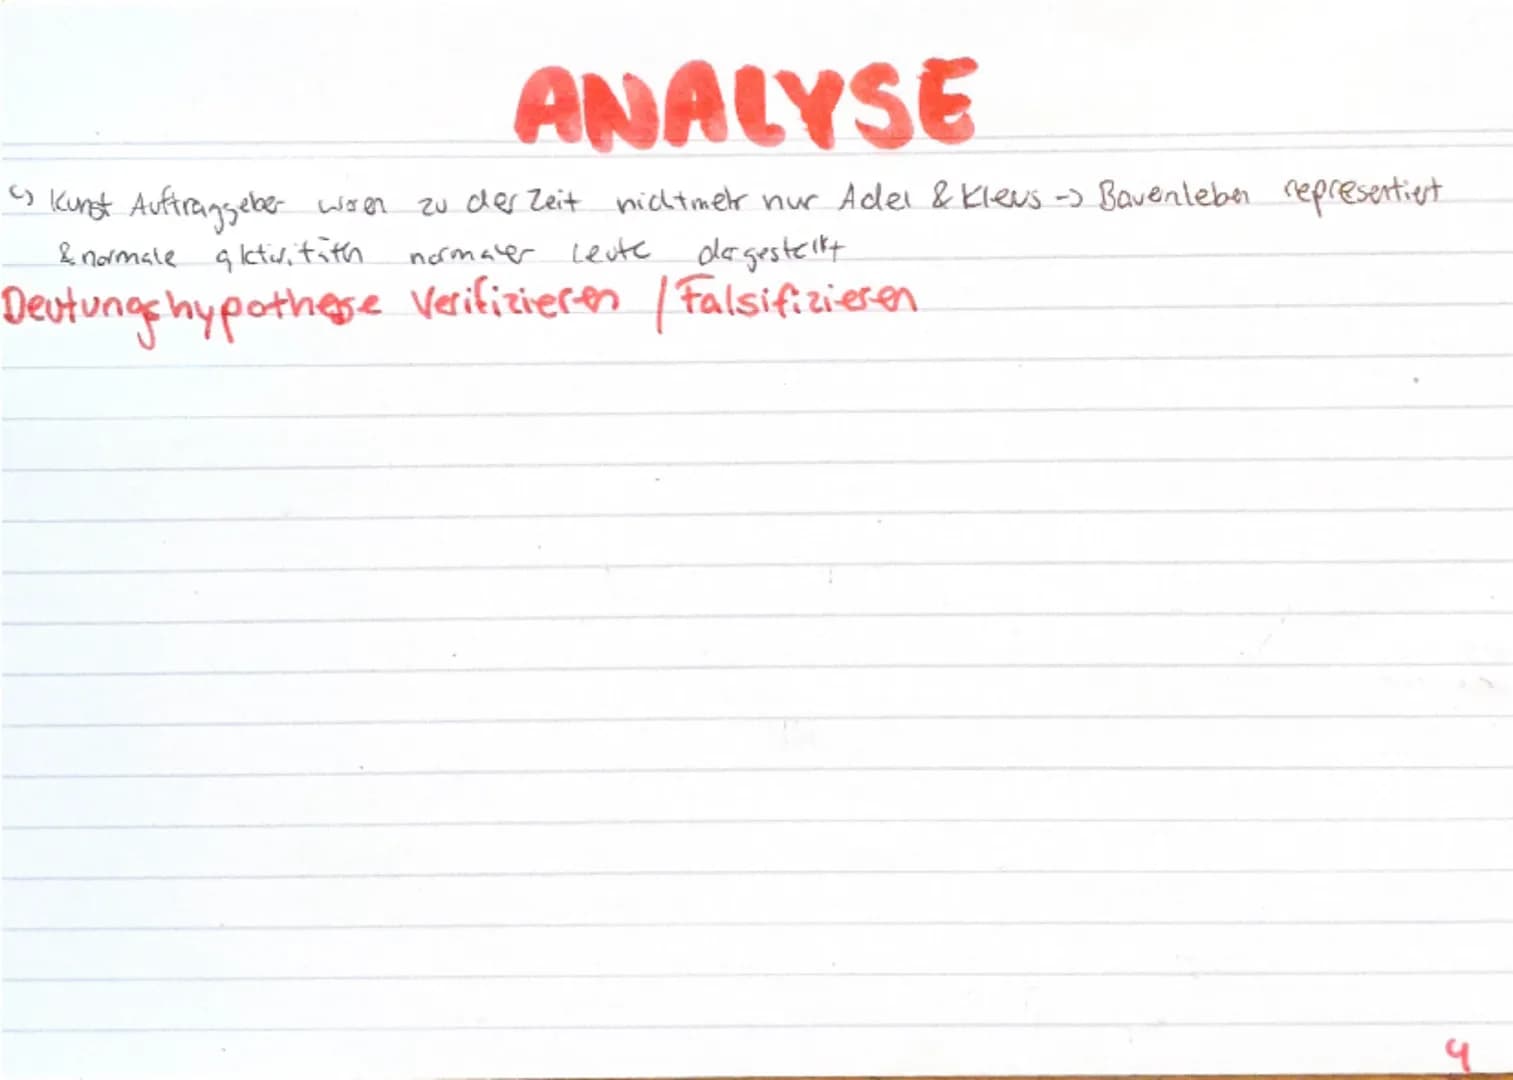 ANALYSE
c) Kunst Auftraggeber waren zu der Zeit nichtmehr nur Adel & Klerus -> Bauernleben representiert
& normale aktivitäten normaler Leute dargestellt
Deutungshypothese Verifizieren / Falsifizieren
4